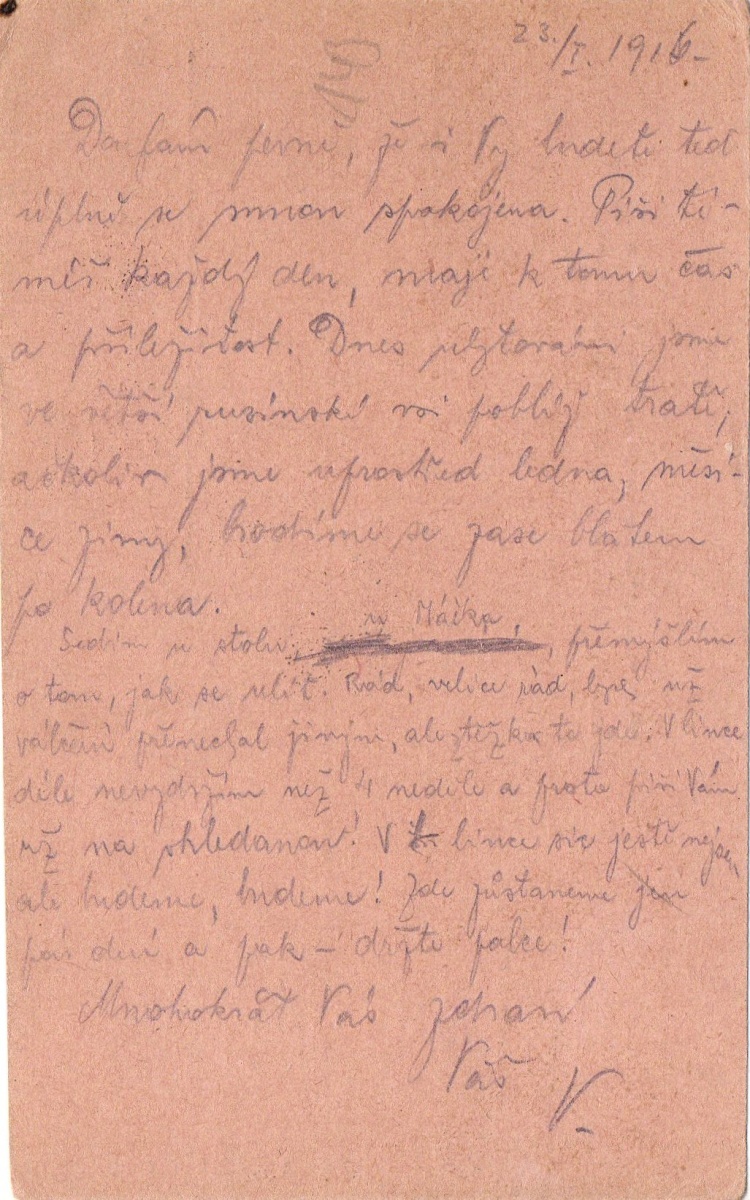 23./I. 1916-
140
Doufám pevně, že i Vy budete teď
úplně se mnou spokojena. Píši té-
měř každý den, maje k tomu čas
a příležitost. Dnes ubytováni jsme
ve větší rusínské vsi poblíž tratě,
ačkoliv jsme uprostřed ledna, měsí-
ce zimy, brodíme se zase blátem
po kolena.
u Máčka,
Sedím u stolu, přemýšlím
o tom, jak se ulít. Rád, velice rád, bych už
válčení přenechal jiným, ale těžko to jde. V lince
déle nevydržím než 4 neděle a proto píši Vám
už na shledanou! V lince sic ještě nejsem,
ale budeme, budeme! Zde zůstaneme jen
pár dní a pak – držte palce!
Mnohokrát Vás zdraví
Váš V.